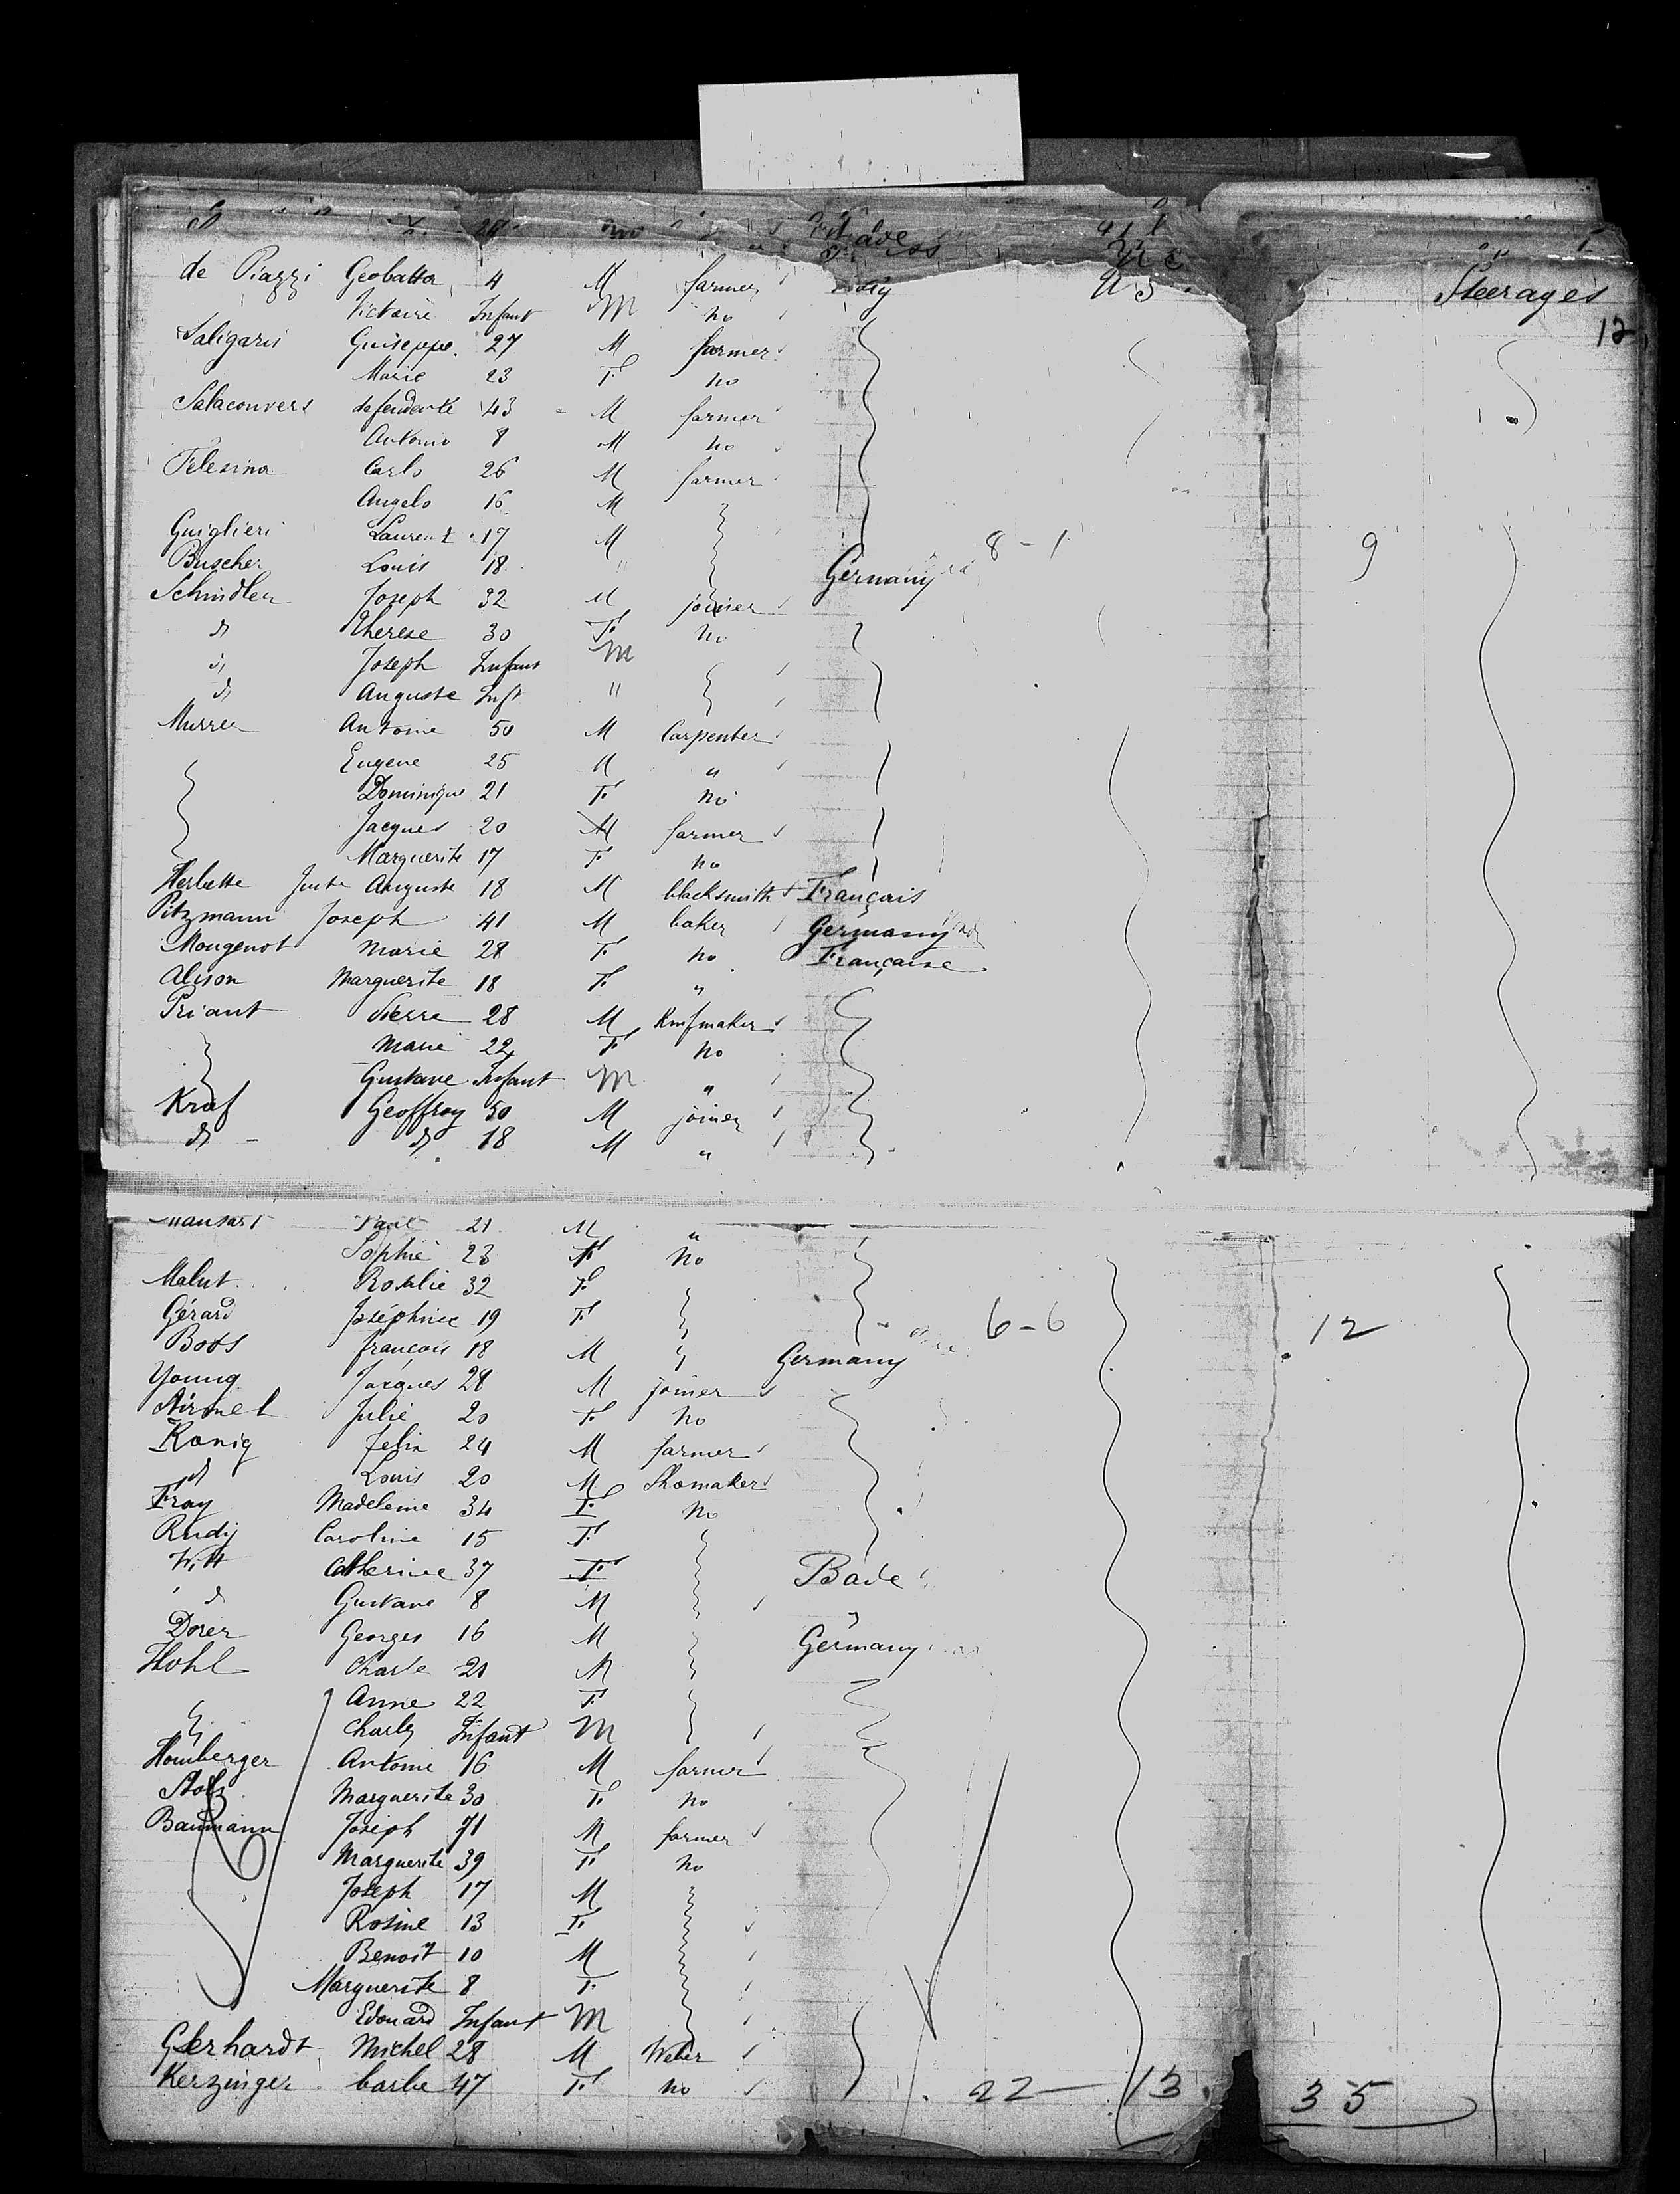 de Piazzi Geobatta 4 M farmer U S. Steerages
Victoire Infant M no
12
Saligaris Guiseppe 27 M farmer
Marie 23 F. no
Salaconvers defendente 43 M farmer
Antonio 8 M no
Telesina Carlo 26 M farmer
Angelo 16 M
Guiglieri Laurent 17 M 8-1 9
Buscher Louis 18 " Germany
Schindler Joseph 32 M joiner
d Therese 30 F. no
d Joseph Infant M
d Auguste Inft "
Murrer Antoine 50 M Carpenter
Eugene 25 M "
Dominique 21 F. no
Jacques 20 M farmer
Marguerite 17 F. no
Herbette Juste Auguste 18 M blacksmith Français
Pitzmann Joseph 41 M baker Germany
Mougenot Marie 28 F. no Française
Alison Marguerite 18 F. "
Priant Pierre 28 M Knifmaker
Marie 22 F no
Gustave Infant M "
Kraf Geoffroy 50 M joiner
d d 18 M "
Paul 21 M "
Sophie 23 F no
Malut Rosalie 32 F
Gérard Joséphine 19 F 6-6 12
Boos françois 18 M Germany
Young Jacques 28 M joiner
Julie 20 F. no
Konig Felix 24 M farmer
d Louis 20 M Shomaker
Fray Madeleine 34 F. no
Rudij Caroline 15 F.
Witt Catherine 37 F. Bade
d Gustave 8 M "
Dorer Georges 16 M Germany
Hohl Charle 21 M
Anne 22 F
Charles Infant M
Homberger Antoine 16 M farmer
Stolz Marguerite 30 F. no
Baumann Joseph 71 M farmer
Marguerite 39 F no
Joseph 17 M
Rosine 13 F.
Benoit 10 M
Marguerite 8 F.
Edouard Infant M
Gerhardt Michel 28 M Weber
Kerzinger barbe 47 F. no 22 - 13. 35